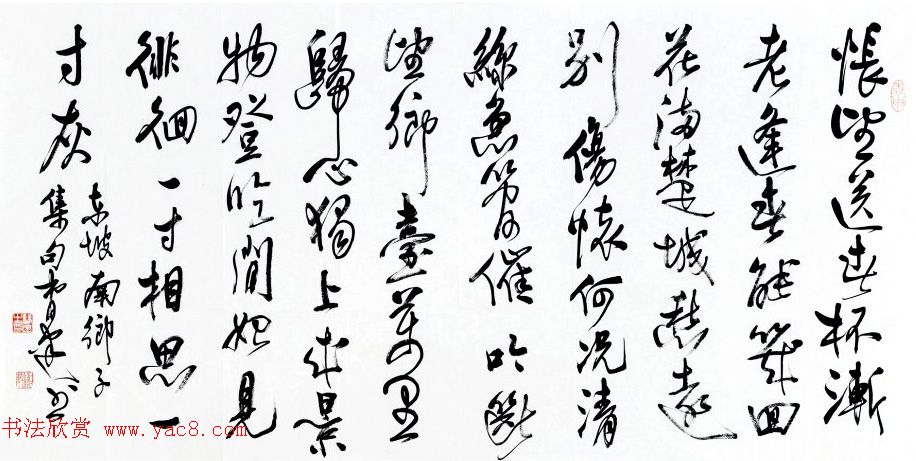 悵望送春杯漸
老逢春能幾回
花滿楚城愁遠
別傷懷何況清
絲急管催吟斷
望鄉臺萬里
歸心獨上來景
物登臨閒始見
徘徊一寸相思一
寸灰
東坡南鄉子
集句
书法欣赏 www.yac8.com